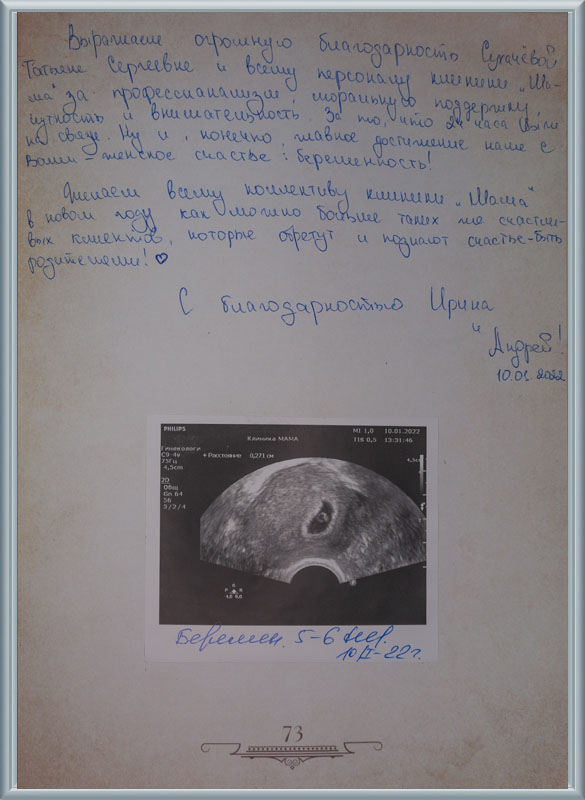 Выражаем огромную благодарность Сухачёвой
Татьяне Сергеевне и всему персоналу клиники „Ма-
ма" за профессианализм, моральную поддержку,
чуткость и внимательность. За то, что 24 часа были
на связи. Ну и, конечно, главное достижение наше с
Вами – женское счастье: беременность!
Желаем всему коллективу клиники „Мама"
в новом году как можно больше таких же счастли-
вых клиентов, которые обретут и познают счастье-быть
родителями! ♡
С благодарностью Ирина
и
Андрей!
10.01.2022
PHILIPS
MI 1,0 10.01.2022
Клиника МАМА
TIS 0,5 13:31:46
Гинекологи
C9-4v
75Гц
4,5cm
+ Расстояние 0,271 см
4,5см
2D
Общ
Gn 64
56
3/2/4
Беремен. 5-6 нед.
10/I-22г.
73